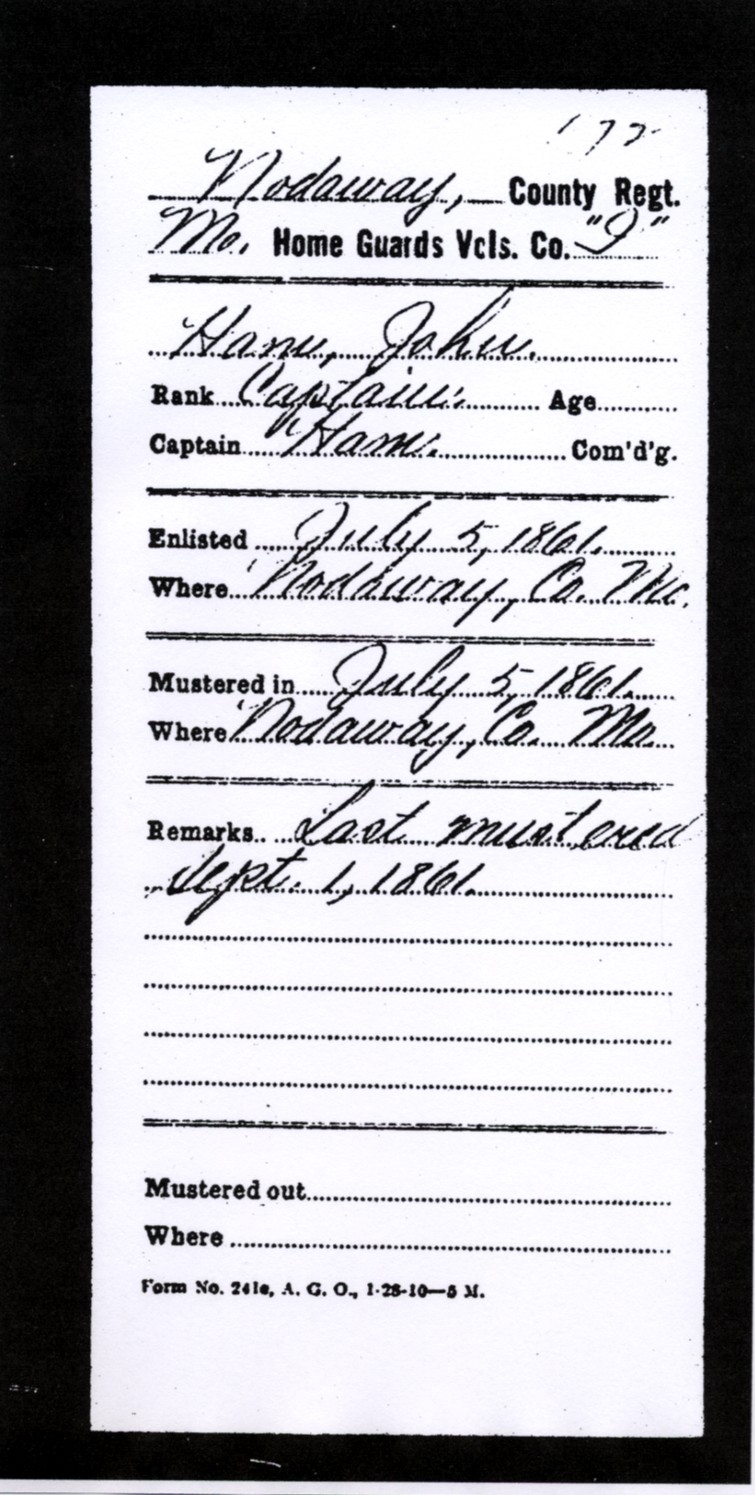 172
Nodaway, County Regt.
Mo. Home Guards Vcls. Co. "I"
Ham, John.
Rank Captain. Age
Captain Ham. Com'd'g.
Enlisted July 5, 1861.
Where Nodaway, Co. Mo.
Mustered in July 5, 1861.
Where Nodaway, Co. Mo.
Remarks Last mustered
Sept. 1, 1861.
Mustered out
Where
Form No. 241e, A. G. O., 1-28-10—5 M.